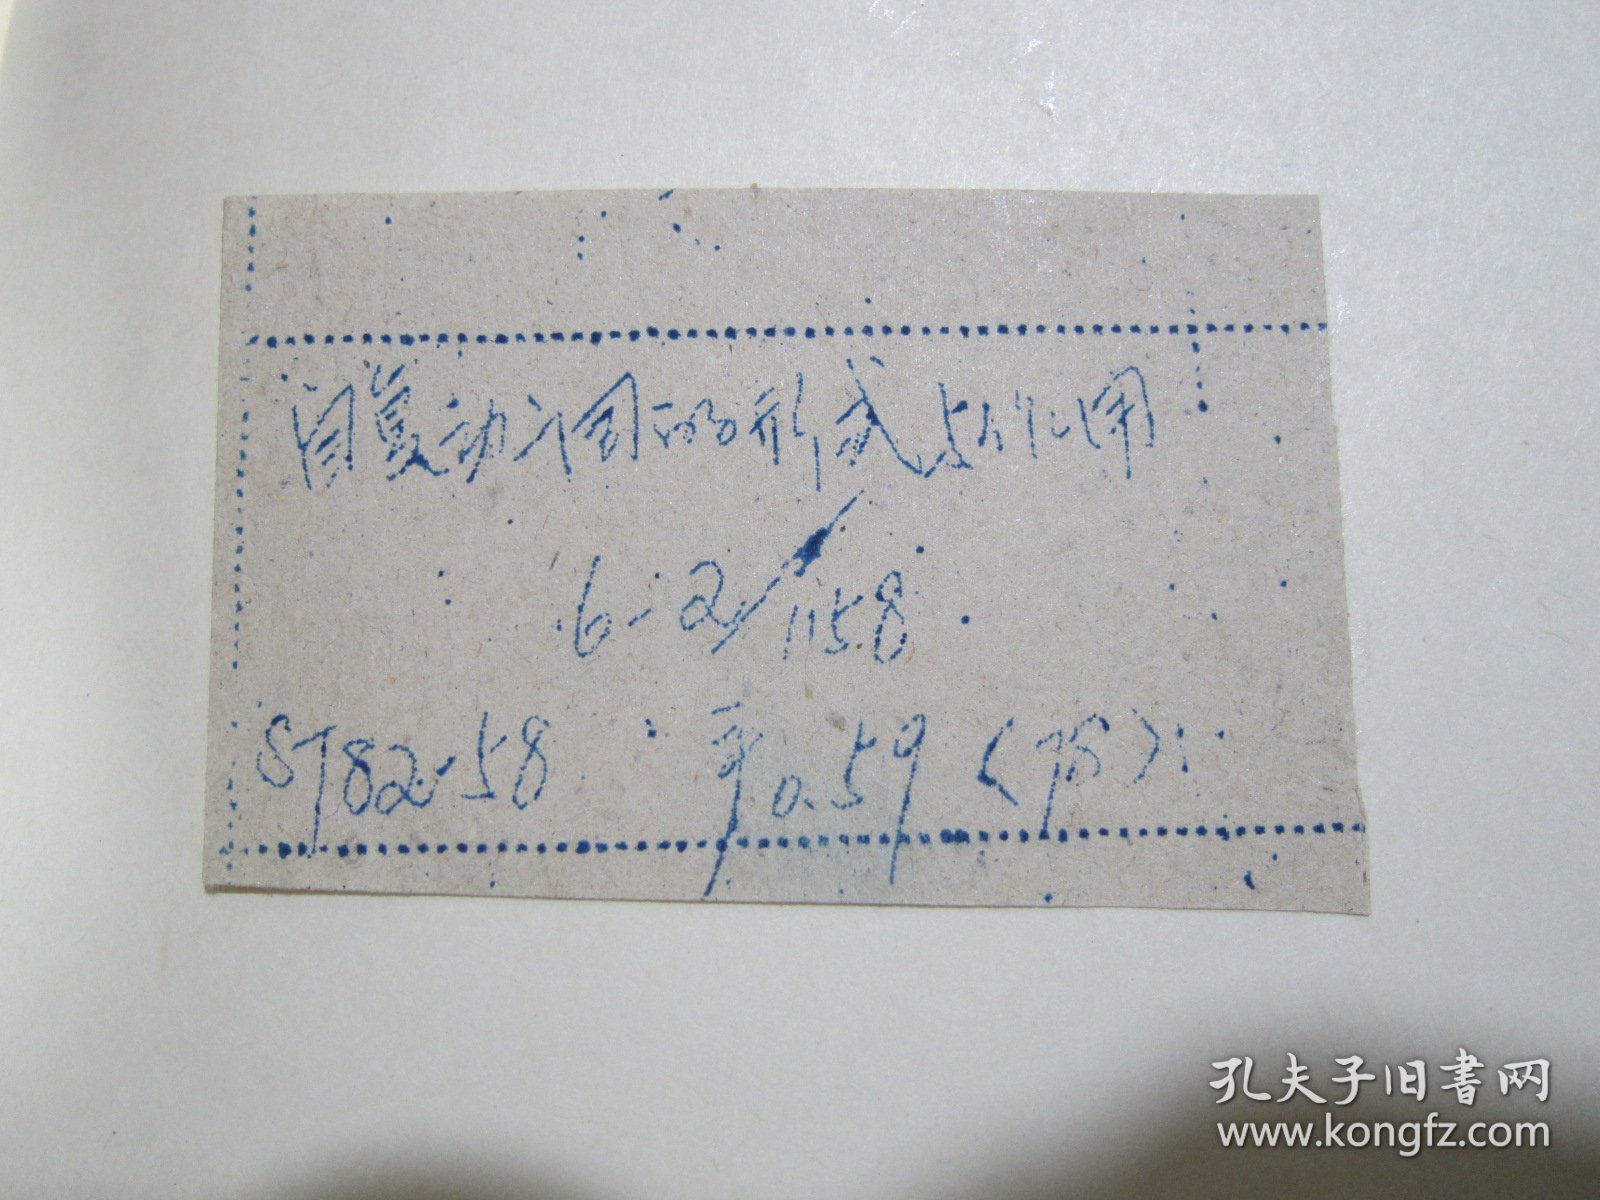 自复动词的形式与作用
6-2/1158
ST82-58 0.59 (
孔夫子旧书网
www.kongfz.com